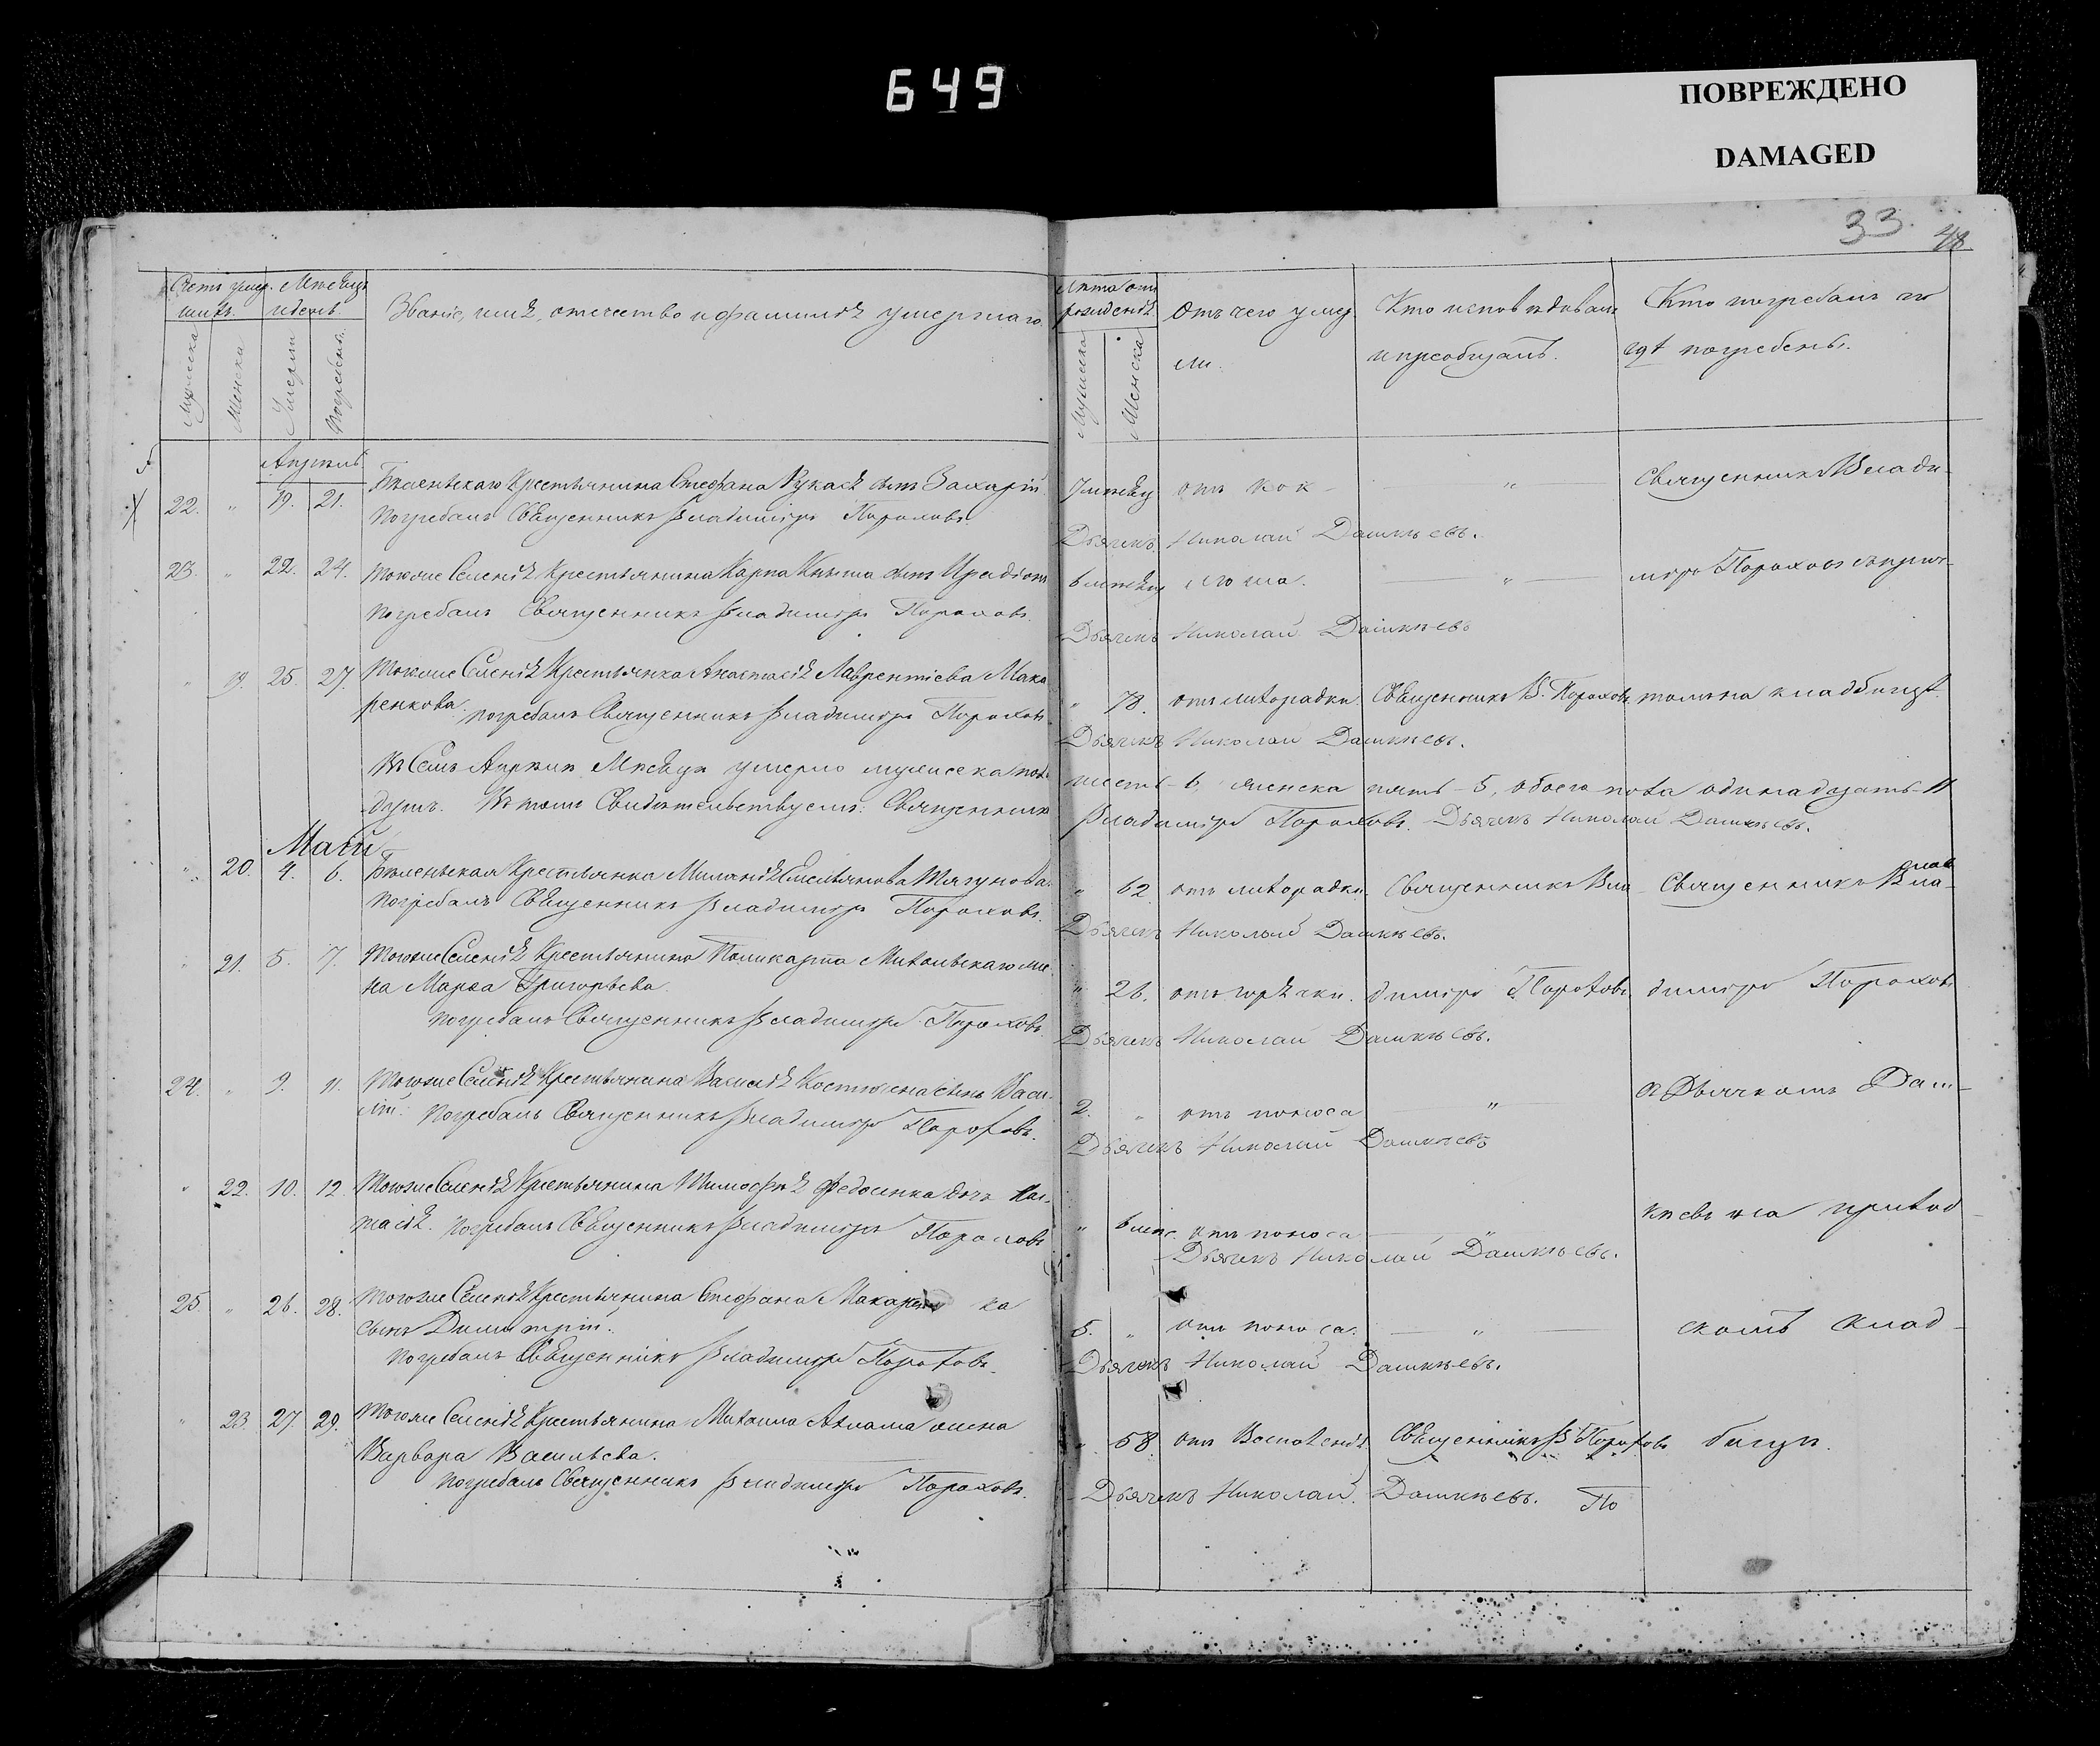 649
ПОВРЕЖДЕНО
DAMAGED
33
48
Счетъ умер. Мѣсяцъ
шихъ. и день.
Званіе, имя, отечество и фамилія умершаго.
Мужеска
Женска
Умерш
Погребен.
Лѣта отъ
рожденія.
Мужеска
Женска
Отъ чего умер
ли.
Кто исповѣдовалъ
и пріобщалъ.
Кто погребалъ и
гдѣ погребены.
Апрѣль
22. " 19. 21. Крестьянина Стефана сынъ Захарій
Погребалъ Священникъ Владиміръ Пороховъ.
7 мѣсяц отъ кок " Священникъ Влади-
Дьячекъ Николай Дашкѣевъ.
23. " 22. 24. Тогоже Селенія Крестьянина Карпа сынъ Иродіонъ
погребалъ Священникъ Владиміръ Пороховъ.
6 мѣсяц "
міръ Пороховъ
Дьячекъ Николай Дашкѣевъ
" 19. 25. 27. Тоюже Селенія Крестьянка Анастасія Лаврентіева Мака
ренкова. погребалъ Священникъ Владиміръ Пороховъ.
" 78. отъ лихорадки Священникъ В. Пороховъ кладбищѣ.
Дьячекъ Николай Дашкѣевъ.
Апрѣлѣ Мѣсяцѣ умерло мужеска пола
шесть - 6, женска пять - 5, обоего пола одинадцать - 11
душъ. Въ томъ Свидѣтельствуемъ: Священникъ
Владиміръ Пороховъ. Дьячекъ Николай Дашкѣевъ.
Май
" 20. 4. 6. Крестьянка Миланія Емельянова
Погребалъ Священникъ Владиміръ Пороховъ.
" 62. отъ лихорадки. Священникъ Вла- Священникъ Вла-
Дьячекъ Николай Дашкѣевъ.
" 21. 5. 7. Тогоже Селенія Крестьянина Поликарпа Михальскаго же-
на Марѳа Григорьева.
погребалъ Священникъ Владиміръ Пороховъ.
" 26. отъ горячки. диміръ Пороховъ диміръ Пороховъ
Дьячекъ Николай Дашкѣевъ.
24. " 9. 11. Тогоже Селенія Крестьянина Василія сынъ Васи-
лій. Погребалъ Священникъ Владиміръ Пороховъ.
2. " отъ поноса " Дьячкомъ Даш-
Дьячекъ Николай Дашкѣевъ
" 22. 10. 12. Тогоже Селенія Крестьянина Тимофѣя Федосенка дочь Нас-
тасія. Погребалъ Священникъ Владиміръ Пороховъ
" 6 мѣс. отъ поноса " кѣевъ на приход
Дьячекъ Николай Дашкѣевъ.
25. " 26. 28. Тогоже Селенія Крестьянина Стефана ка
сынъ Димитрій.
погребалъ Священникъ Владиміръ Пороховъ.
5. " отъ поноса. " скомъ клад-
Дьячекъ Николай Дашкѣевъ.
" 23. 27. 29. Тогоже Селенія Крестьянина Михаила жена
Варвара Васильева.
Погребалъ Священникъ Владиміръ Пороховъ.
" 58. отъ Воспаленія Священникъ В Пороховъ бищѣ.
Дьячекъ Николай Дашкѣевъ. По